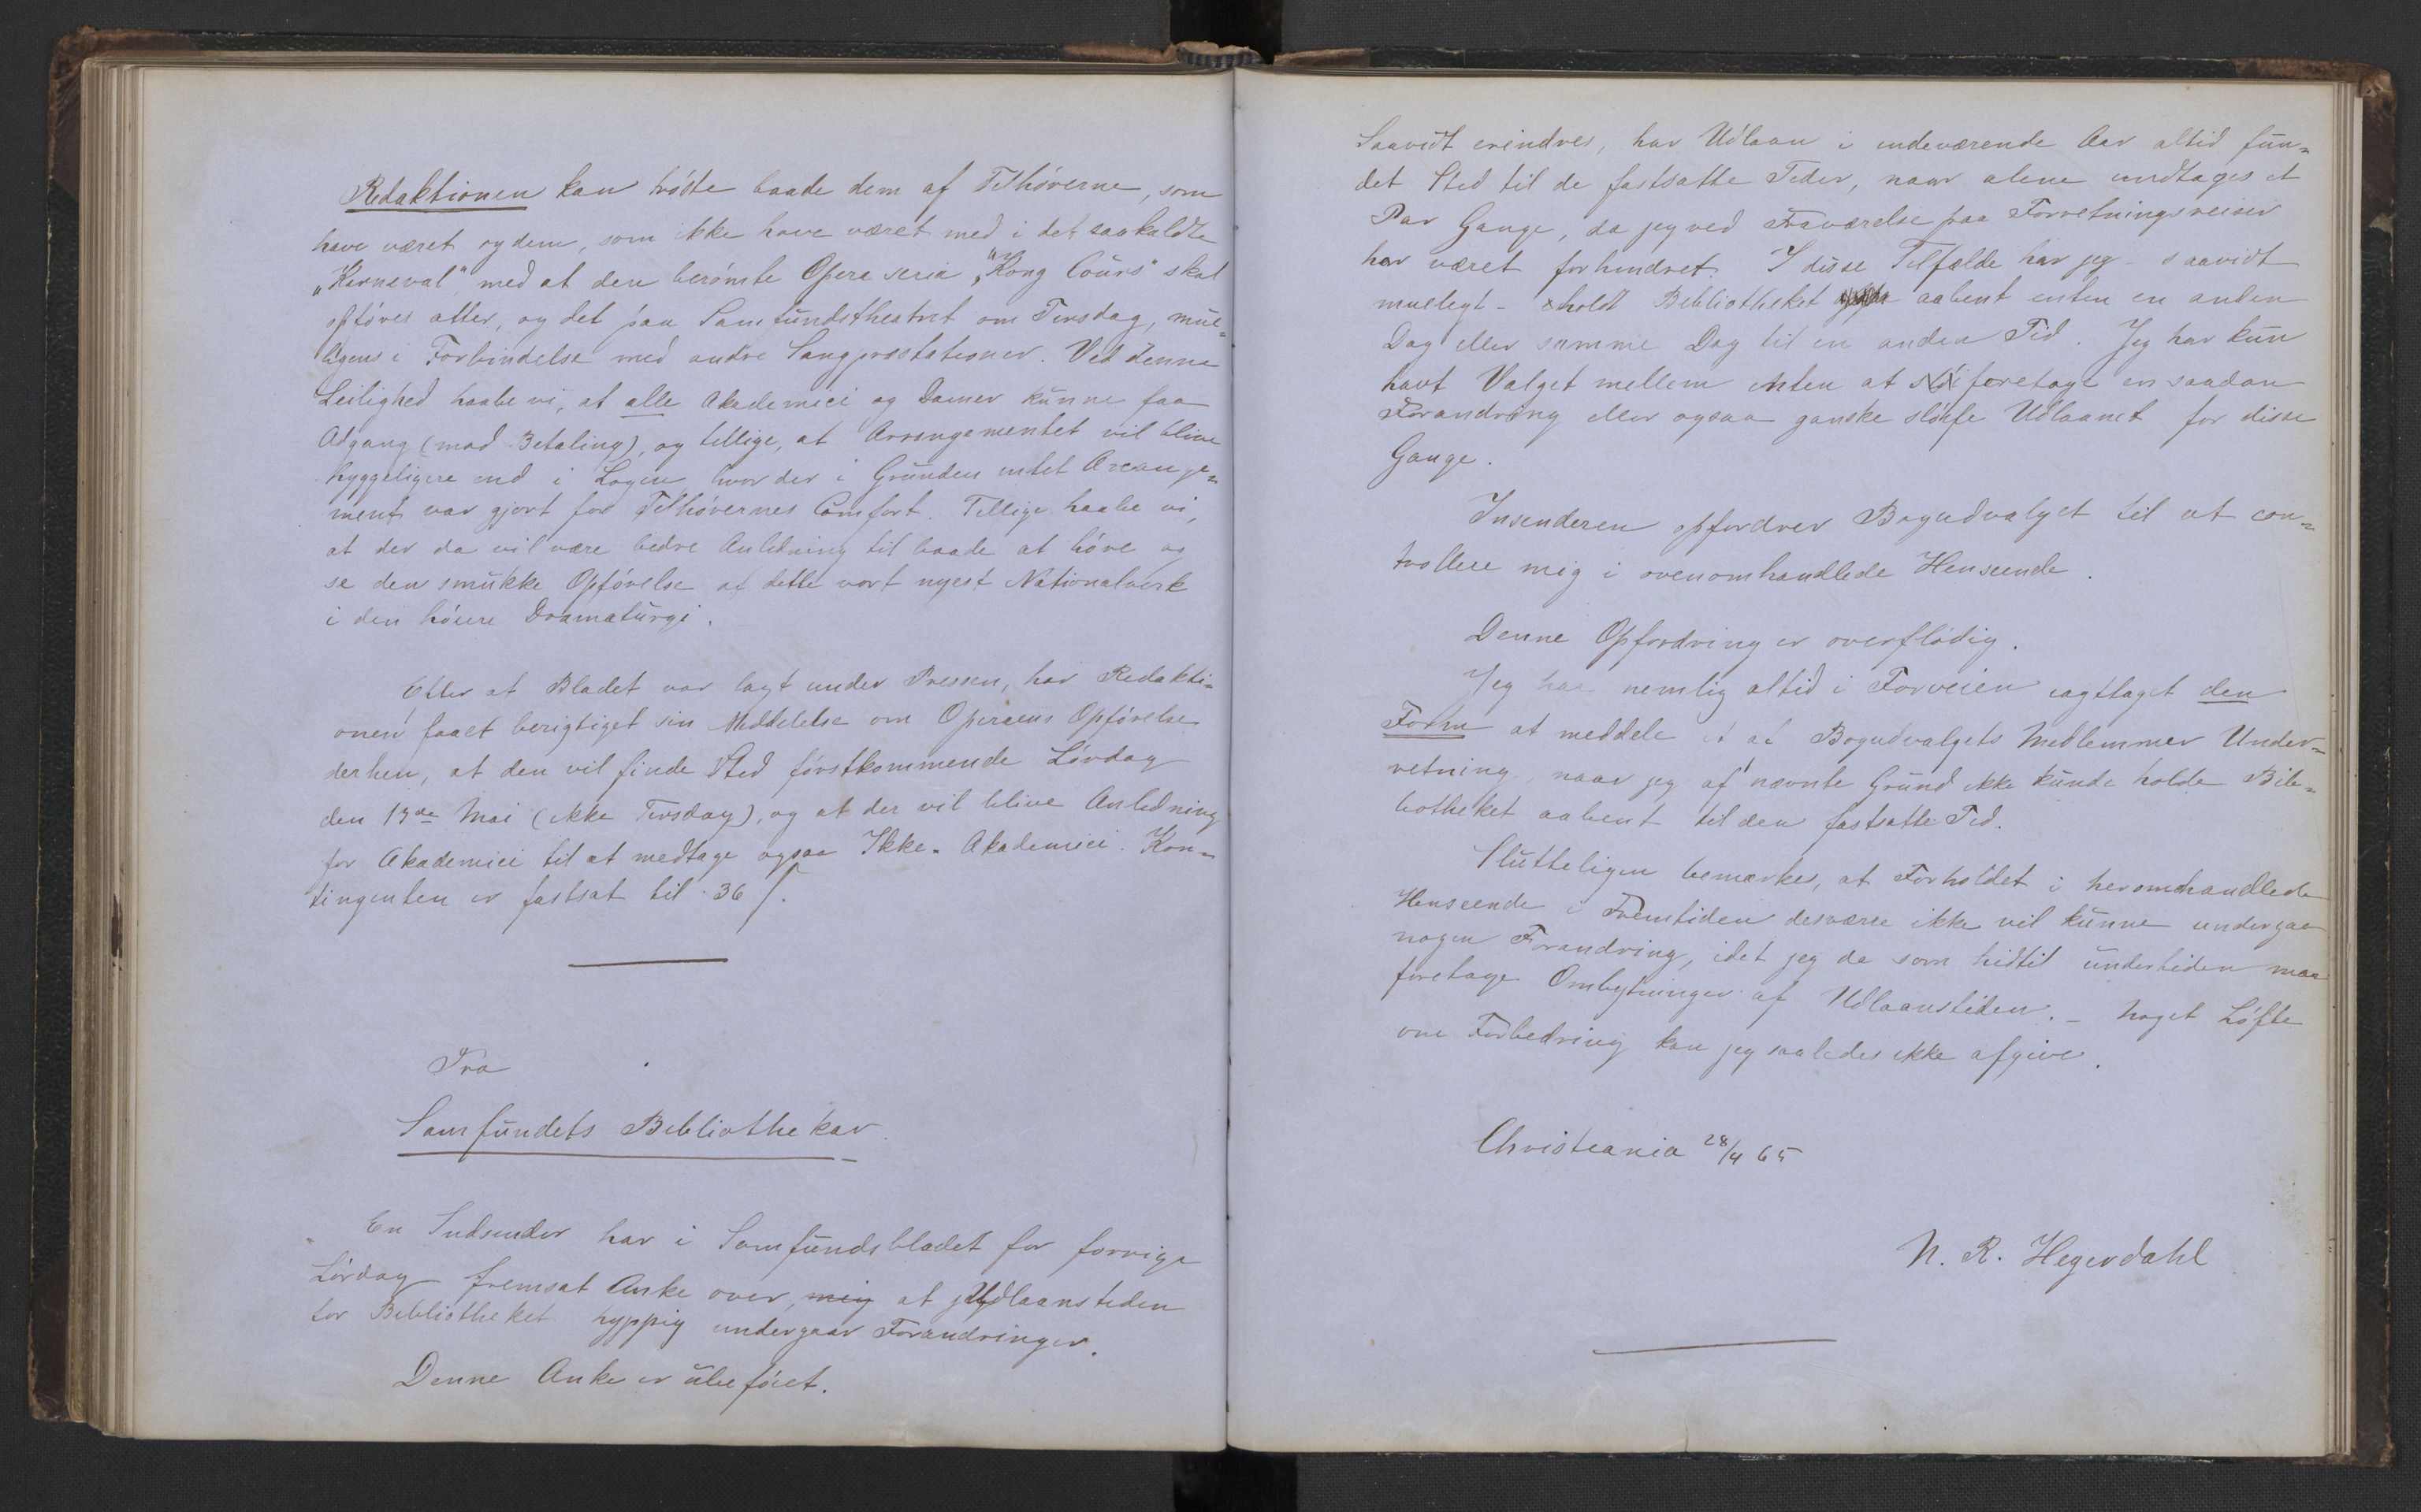 Redaktionen kan trøste baade dem af Tilhørerne, som
have været og dem, som ikke have været med i det saakaldte
„Karneval“, med at den berømte Opera seria „Kong Cours“ skal
opføres atter, og det paa Samfundstheatret om Tirsdag, mue-
ligens i Forbindelse med andre Sangpræstationer. Ved denne
Leilighed haabe vi, at alle Akademici og Damer kunne faa
Adgang (mod Betaling), og tillige, at Arrangementet vil blive
hyggeligere end i Logen, hvor der i Grunden intet Arrange-
ment var gjort for Tilhørernes Comfort. Tillige haabe vi,
at der da vil være bedre Anledning til baade at høre og
se den smukke Opførelse af dette vort nyest Nationalverk
i den høiere Dramaturgi.
Efter at Bladet var lagt under Pressen, har Redakti-
onen faaet berigtiget sin Meddelelse om Operaens Opførelse
derhen, at den vil finde Sted førstkommende Lørdag
den 13de Mai (ikke Tirsdag), og at der vil blive Anledning
for Akademici til at medtage ogsaa Ikke-Akademici. Kon-
tingenten er fastsat til 36 ſ.
Fra
Samfundets Bibliothekar.
En Indsender har i Samfundsbladet for forrige
Lørdag fremsat Anke over, mig at Udlaanstiden
for Bibliotheket hyppig undergaar Forandringer.
Denne Anke er ubeføiet.
Saavidt erindres, har Udlaan i indeværende Aar altid fun-
det Sted til de fastsatte Tider, naar alene undtages et
Par Gange, da jeg ved Fraværelse paa Forretningsreiser
har været forhindret. I disse Tilfælde har jeg - saavidt
mueligt - holdt Bibliotheket aabent enten en anden
Dag eller samme Dag til en anden Tid. Jeg har kun
havt Valget mellem enten at foretage en saadan
Forandring eller ogsaa ganske sløife Udlaanet for disse
Gange.
Insenderen opfordrer Bogudvalget til at con-
trollere mig i ovenomhandlede Henseende.
Denne Opfordring er overflødig.
Jeg har nemlig altid i Forveien iagttaget den
Form at meddele et af Bogudvalgets Medlemmer Under-
retning, naar jeg af nævnte Grund ikke kunde holde Bib-
liotheket aabent til den fastsatte Tid.
Slutteligen bemærkes, at Forholdet i heromhandlede
Henseende i Fremtiden desværre ikke vil kunne undergaa
nogen Forandring, idet jeg da som hidtil undertiden maa
foretage Ombytninger af Udlaanstiden. - Noget Løfte
om Forbedring kan jeg saaledes ikke afgive.
Christiania 28/4 65
N. R. Hegerdahl